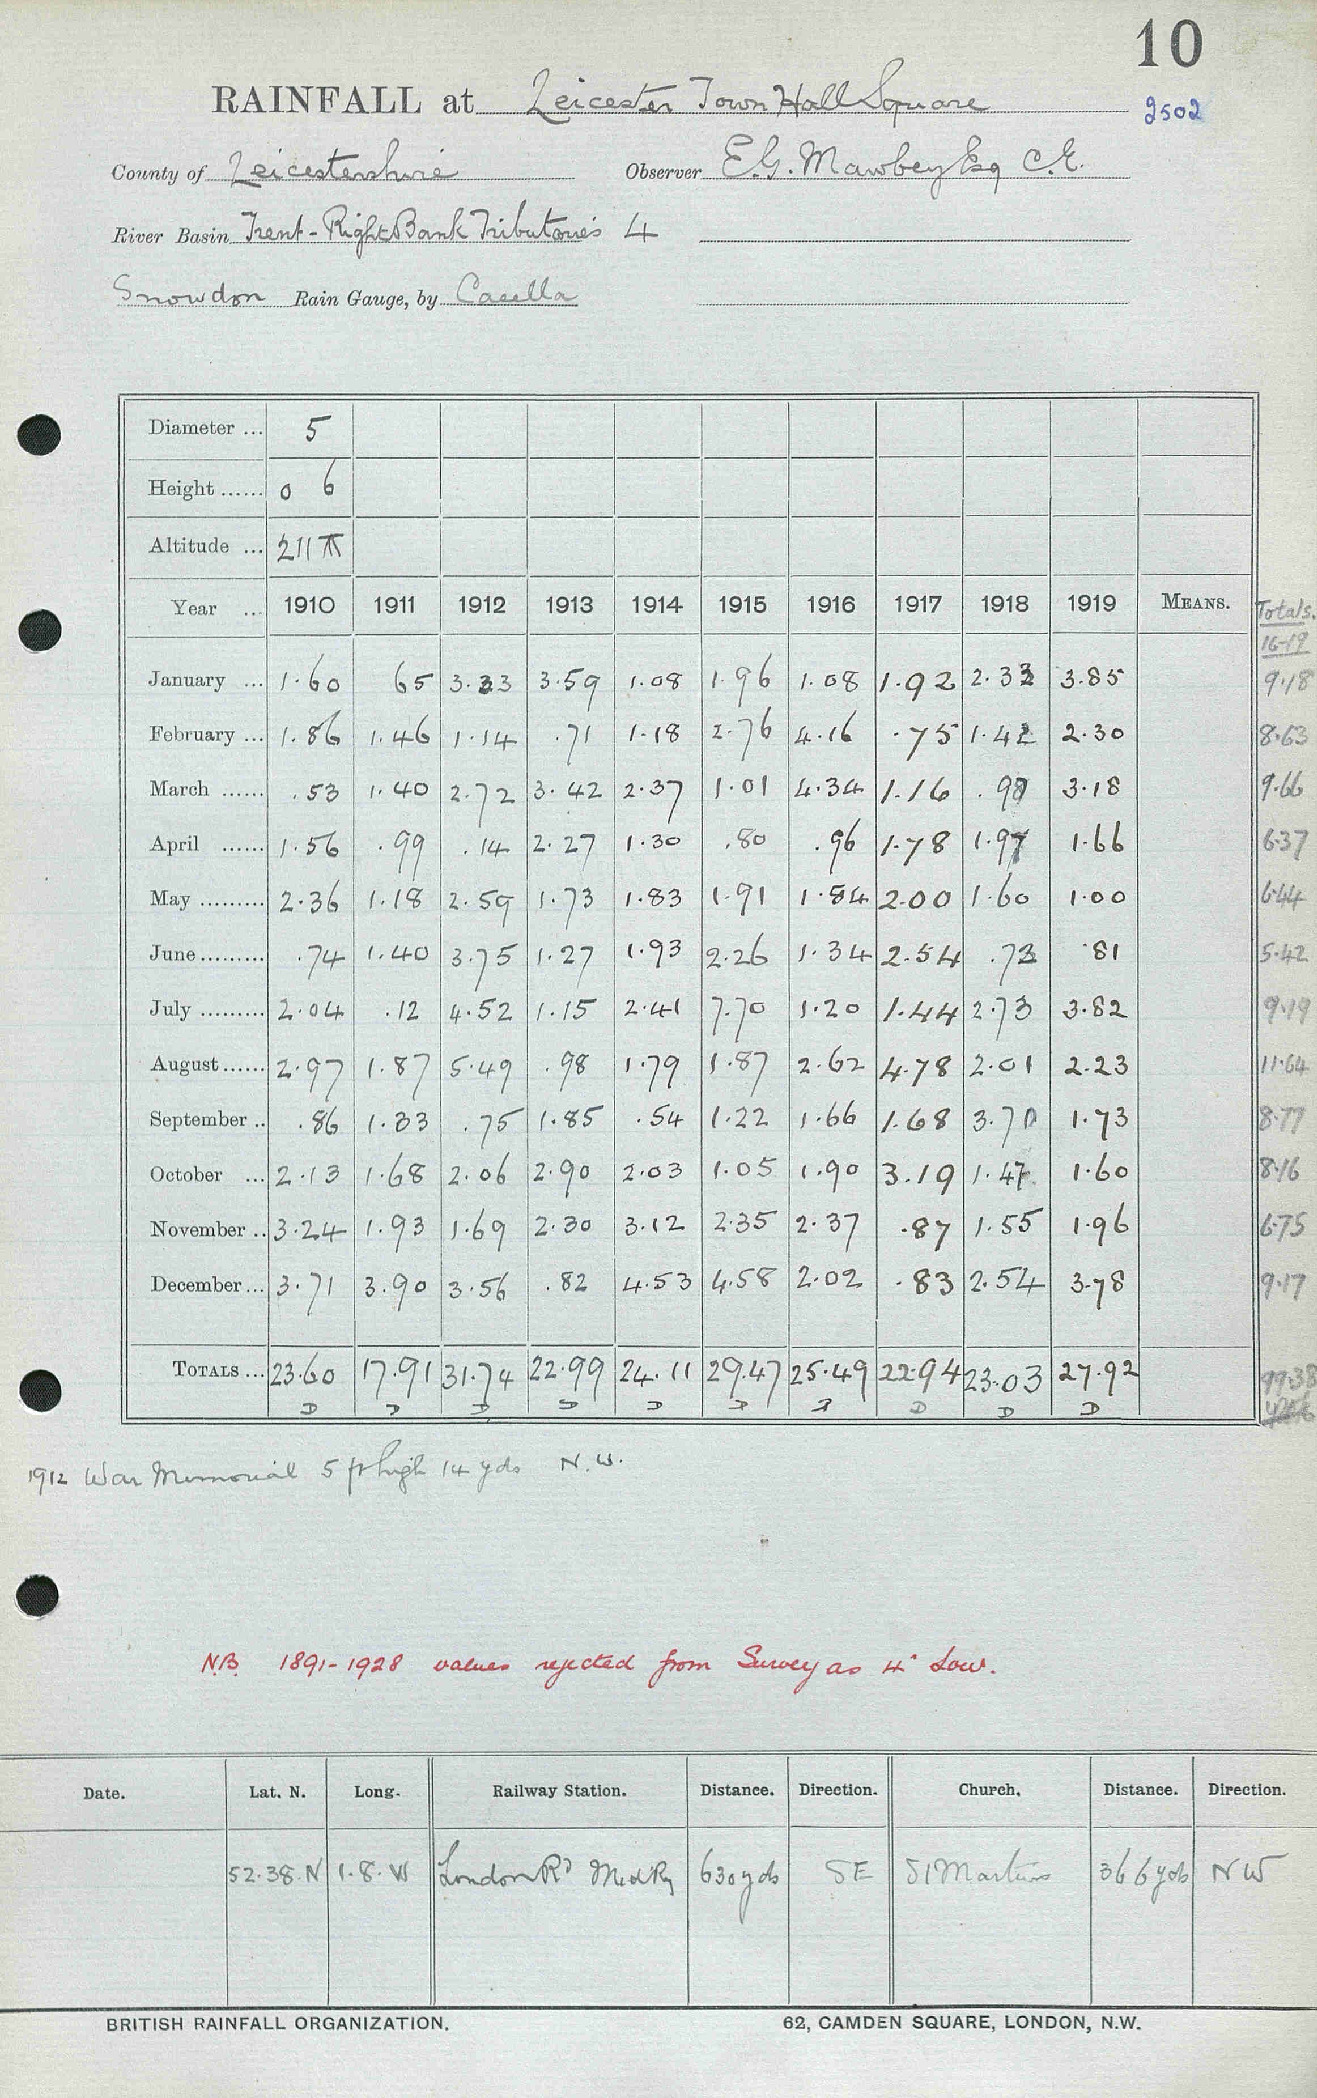 10
RAINFALL at Leicester Town Hall Square
2502
County of Leicestershire Observer E.G. Mawbey Esq C.E.
River Basin Trent - Right Bank Tributaries 4
Snowdon Rain Gauge, by Casella
Diameter ... 5
Height ...... 0 6
Altitude ... 211 ft
Year ... 1910 1911 1912 1913 1914 1915 1916 1917 1918 1919 MEANS. Totals.
16-19
January ... 1.60 65 3.33 3.59 1.08 1.96 1.08 1.92 2.33 3.85 9.18
February ... 1.86 1.46 1.14 .71 1.18 2.76 4.16 .75 1.42 2.30 8.63
March ...... .53 1.40 2.72 3.42 2.37 1.01 4.34 1.16 .98 3.18 9.66
April ...... 1.56 .99 .14 2.27 1.30 .80 .96 1.78 1.97 1.66 6.37
May ......... 2.36 1.18 2.59 1.73 1.83 1.91 1.84 2.00 1.60 1.00 6.44
June ......... .74 1.40 3.75 1.27 1.93 2.26 1.34 2.54 .73 .81 5.42
July ......... 2.04 .12 4.52 1.15 2.41 7.70 1.20 1.44 2.73 3.82 9.19
August ...... 2.97 1.87 5.49 .98 1.79 1.87 2.62 4.78 2.01 2.23 11.64
September .. .86 1.33 .75 1.85 .54 1.22 1.66 1.68 3.70 1.73 8.77
October ... 2.13 1.68 2.06 2.90 2.03 1.05 1.90 3.19 1.47 1.60 8.16
November .. 3.24 1.93 1.69 2.30 3.12 2.35 2.37 .87 1.55 1.96 6.75
December ... 3.71 3.90 3.56 .82 4.53 4.58 2.02 .83 2.54 3.78 9.17
TOTALS ... 23.60 17.91 31.74 22.99 24.11 29.47 25.49 22.94 23.03 27.92 99.38
D D D D D D D D D D
1912 War Memorial 5 ft high 14 yds N.W.
N.B. 1891-1928 values rejected from Survey as 4" Low.
Date. Lat. N. Long. Railway Station. Distance. Direction. Church. Distance. Direction.
52.38.N 1.8.W London Rd Mid Ry 630 yds SE St Martins 366 yds NW
BRITISH RAINFALL ORGANIZATION. 62, CAMDEN SQUARE, LONDON, N.W.